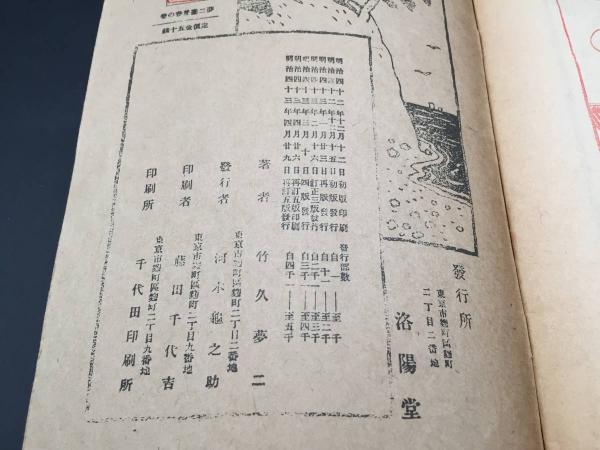 夢二畫集春の卷
定價金五十錢
明治四十二年十二月十二日初版印刷 發行部數
明治四十二年十二月十五日初版發行 自一——至千
明治四十三年一月廿三日再版發行 自十一——至二千
明治四十三年二月十六日訂正三版發行 自二千一——至三千
明治四十三年三月十日四版發行 自三千一——至四千
明治四十三年四月廿六日再訂五版印刷
明治四十三年四月廿九日再訂五版發行 自四千一——至五千
著者 竹久夢二
東京市麹町區麹町二丁目二番地
發行者 河本龜之助
東京市麹町區麹町二丁目九番地
印刷者 藤田千代吉
東京市麹町區麹町二丁目九番地
印刷所 千代田印刷所
發行所
東京市麹町區麹町
二丁目二番地
洛陽堂